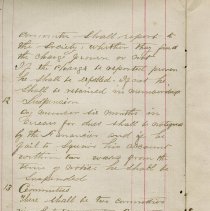 Committee shall report to
the Society: whether they find
the charge proven or not
If the charge is reported proven
he shall be expelled. If not he
Shall be retained in membership
12 Suspension
Any member six months in
arrears for dues shall be notified
by the Financier and if he
fail to square his account
within two weeks from the
time of notice he shall be
Suspended
13 Committees
There shall be two committees